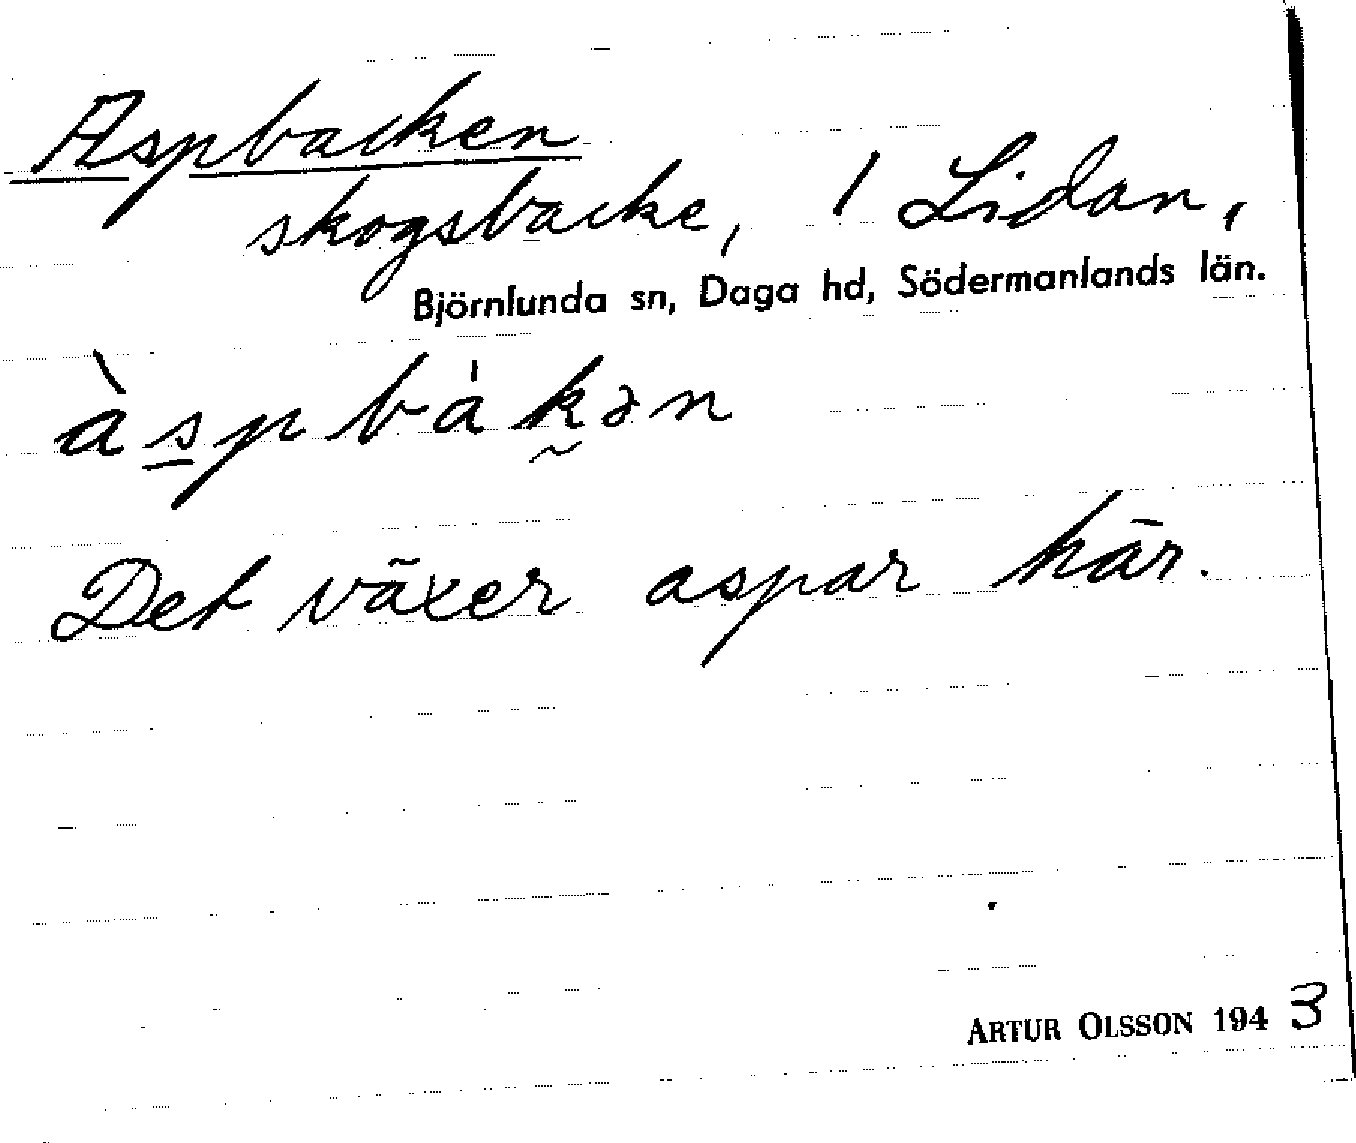 Aspbacken
skogsbacke, 1 Lidan,
Björnlunda sn, Daga hd, Södermanlands län.
àspbákən
Det växer aspar här.
ARTUR OLSSON 1943